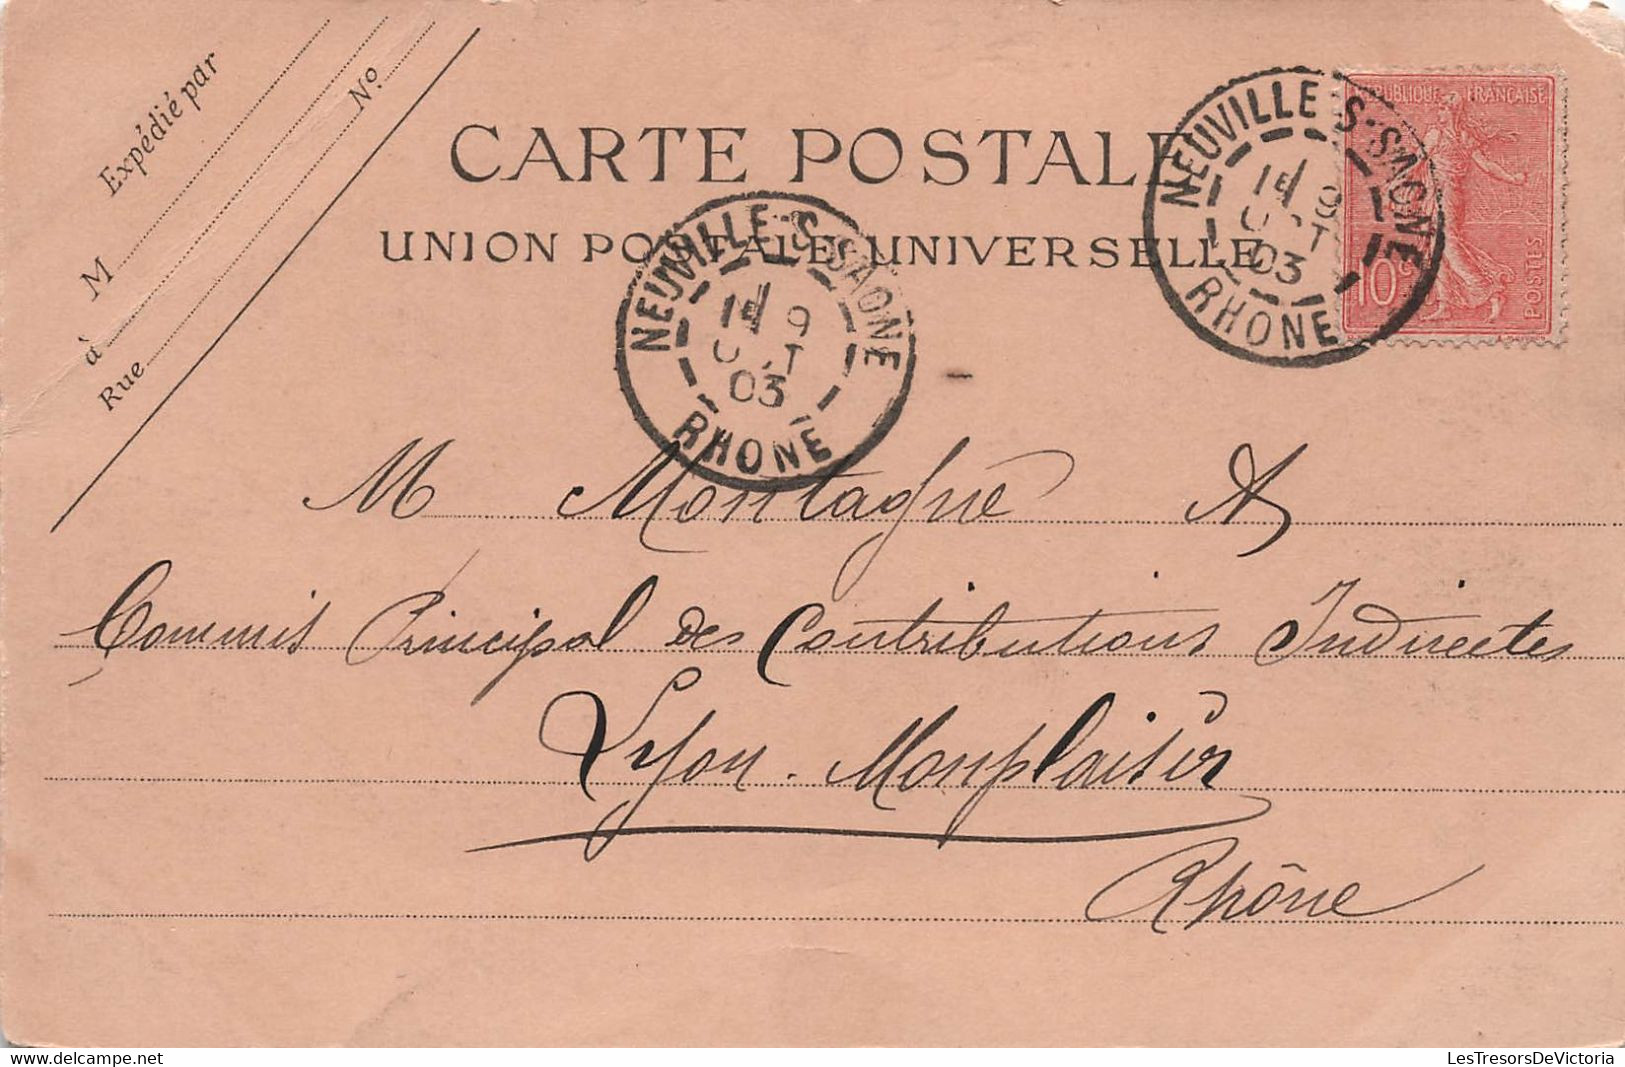 Expédié par
M
à
Rue
N°
CARTE POSTALE
UNION POSTALE UNIVERSELLE
RÉPUBLIQUE FRANÇAISE
10c
POSTES
NEUVILLE-S-SAONE
9
OCT
03
RHONE
NEUVILLE-S-SAONE
9
OCT
03
RHONE
M Montagne A
Commis Principal des Contributions Indirectes
Lyon. Monplaisir
Rhône
www.delcampe.net
LesTresorsDeVictoria